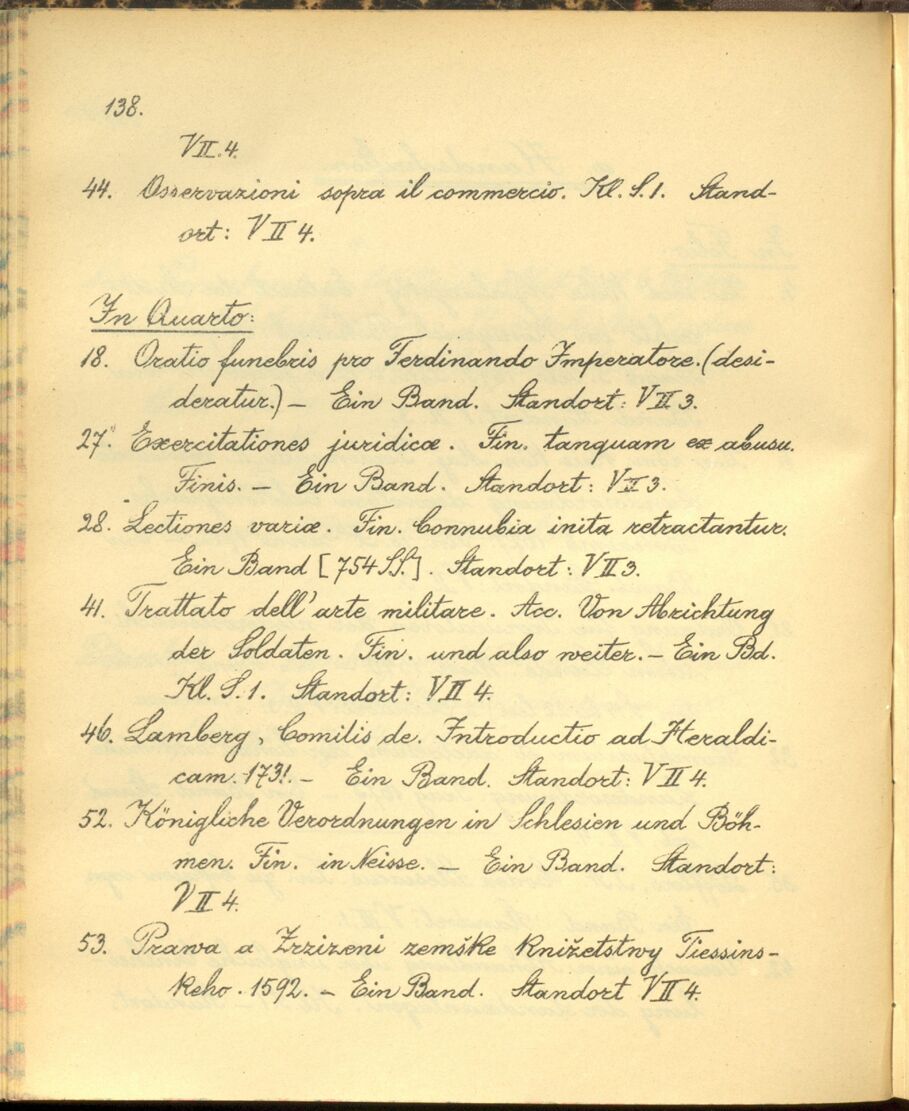 138.
VII.4.
44. Osservazioni sopra il commercio. Kl. S. 1. Stand-
ort: VII 4.
In Quarto:
18. Oratio funebris pro Ferdinando Imperatore. (desi-
deratur.) — Ein Band. Standort: VII 3.
27. Exercitationes juridicæ. Fin. tanquam ex abusu.
Finis. — Ein Band. Standort: VII 3.
28. Lectiones variæ. Fin. Connubia inita retractantur.
Ein Band [754 SS.]. Standort: VII 3.
41. Trattato dell'arte militare. Acc. Von Abrichtung
der Soldaten. Fin. und also weiter. — Ein Bd.
Kl. S. 1. Standort: VII 4.
46. Lamberg, Comitis de. Introductio ad Heraldi-
cam. 173!. — Ein Band. Standort: VII 4.
52. Königliche Verordnungen in Schlesien und Böh-
men. Fin. in Neisse. — Ein Band. Standort:
VII 4.
53. Prawa a Zrzizeni zemške Knižetstwy Tiessins-
keho. 1592. — Ein Band. Standort VII 4.